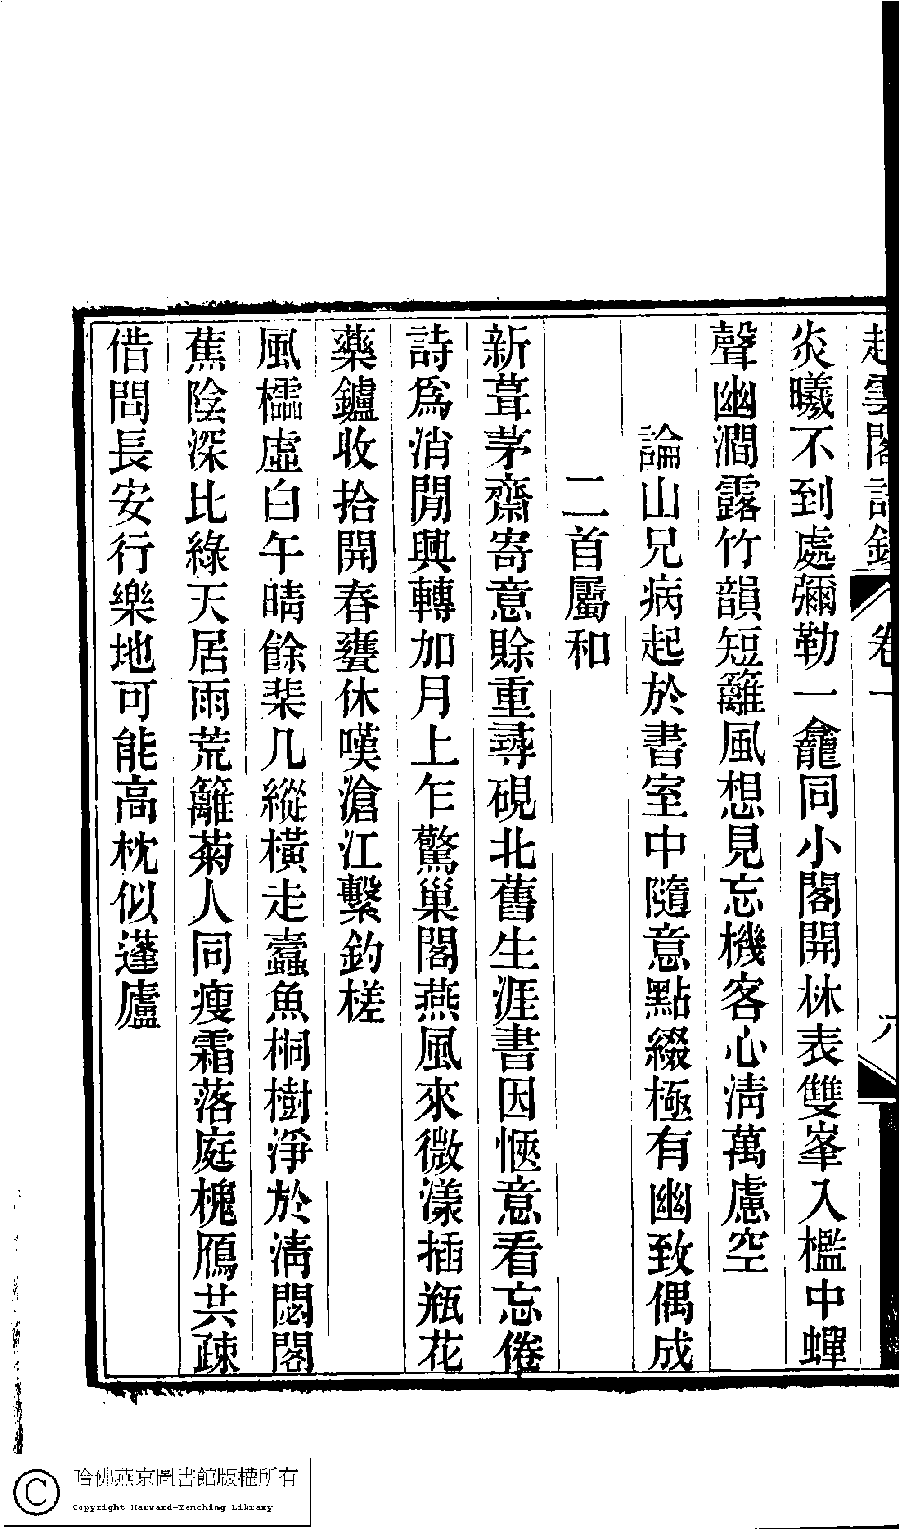 雲閣詩鈔 卷一
炎曦不到處彌勒一龕同小閣開林表雙峯入檻中蟬
聲幽澗露竹韻短籬風想見忘機客心淸萬慮空
論山兄病起於書室中隨意點綴極有幽致偶成
二首屬和
新葺茅齋寄意賖重尋硯北舊生涯書因愜意看忘倦
詩爲消閒興轉加月上乍驚巢閣燕風來微漾插瓶花
藥鑪收拾開春甕休嘆滄江繫釣槎
風櫺虛白午晴餘棐几縱橫走蠹魚桐樹淨於淸閟閣
蕉陰深比綠天居雨荒籬菊人同瘦霜落庭槐鴈共疎
借問長安行樂地可能高枕似蘧廬
哈佛燕京圖書館版權所有
Copyright Harvard-Yenching Library